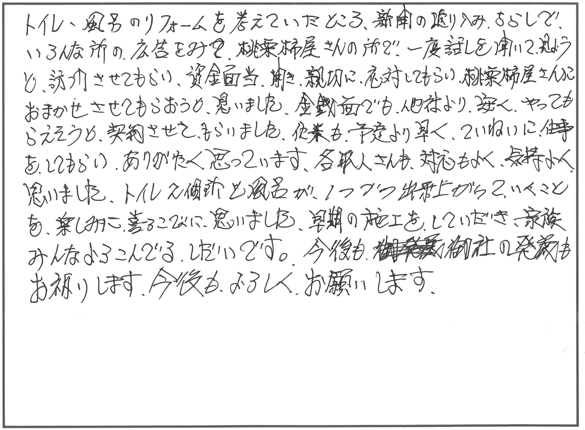 トイレ、風呂のリフォームを考えていたところ、新聞の折り込み、ちらしで、
いろんな所の広告をみて、桃栗柿屋さんの所で、一度話しを聞いて見よう
と、訪問させてもらい、資金面、親切に、応対してもらい、桃栗柿屋さんに
おまかせさせてもらおうと、思いました。金額面でも、他社より、安く、やって
もらえそうと、契約させて、もらいました。作業も、予定より早く、ていねいに、仕事
を、してもらい、ありがたく思っています。各職人さんも、対応もよく、気持よく、
思いました。トイレ2個所と風呂が、1つづつ出来上がって、いくこと
を、楽しみに、喜こびに、思いました。早期の施工を、していだき、家族
みんなよろこんでる、しだいです。今後も、御社の発展も
お祈りします。今後も、よろしく、お願いします。